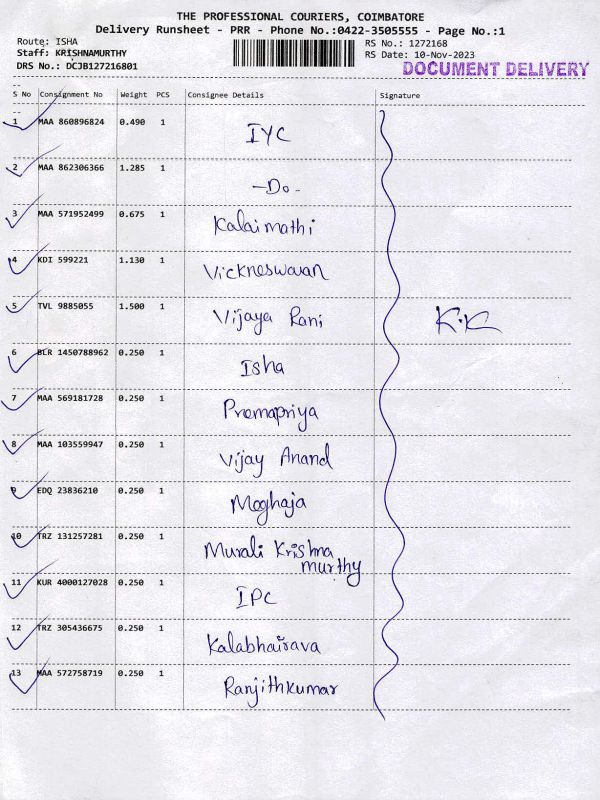 THE PROFESSIONAL COURIERS, COIMBATORE
Delivery Runsheet - PRR - Phone No.:0422-3505555 - Page No.:1
Route: ISHA
Staff: KRISHNAMURTHY
DRS No.: DCJB127216801
RS No.: 1272168
RS Date: 10-Nov-2023
DOCUMENT DELIVERY
S No Consignment No Weight PCS Consignee Details Signature
1 MAA 860896824 0.490 1 IYC
2 MAA 862306366 1.285 1 -Do-
3 MAA 571952499 0.675 1 Kalaimathi
4 KDI 599221 1.130 1 Vickneswaran
5 TVL 9885055 1.500 1 Vijaya Rani K.K
6 BLR 1450788962 0.250 1 Isha
7 MAA 569181728 0.250 1 Premapriya
8 MAA 103559947 0.250 1 Vijay Anand
9 EDQ 23836210 0.250 1 Moghaja
10 TRZ 131257281 0.250 1 Murali Krishna
murthy
11 KUR 4000127028 0.250 1 IPC
12 TRZ 305436675 0.250 1 Kalabhairava
13 MAA 572758719 0.250 1 Ranjithkumar